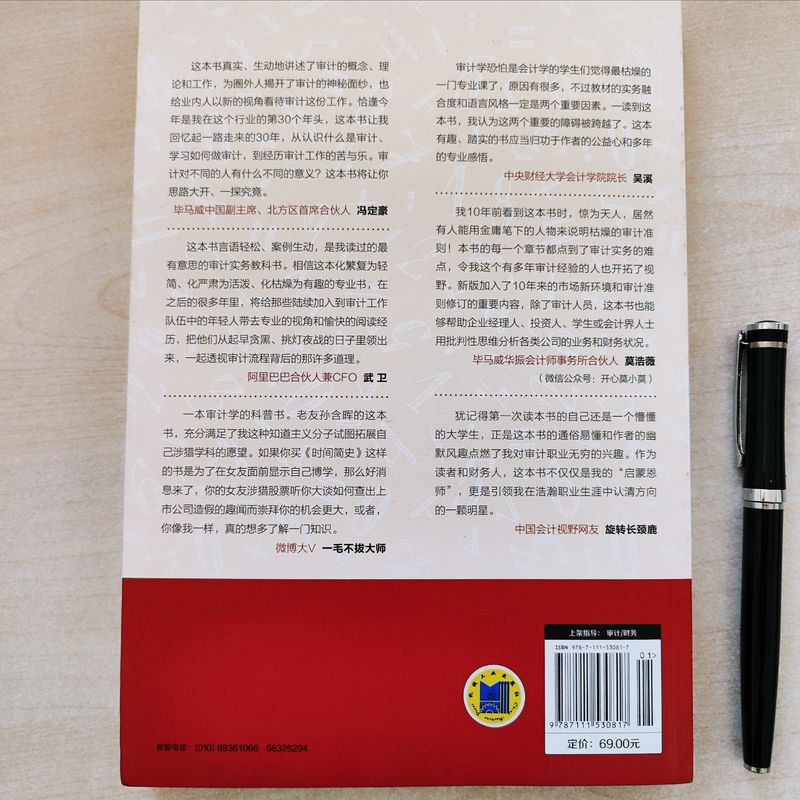 这本书真实、生动地讲述了审计的概念、理
论和工作，为圈外人揭开了审计的神秘面纱，也
给业内人以新的视角看待审计这份工作。恰逢今
年是我在这个行业的第30个年头，这本书让我
回忆起一路走来的30年，从认识什么是审计、
学习如何做审计，到经历审计工作的苦与乐。审
计对不同的人有什么不同的意义？这本书将让你
思路大开、一探究竟。
毕马威中国副主席、北方区首席合伙人 冯定豪
这本书言语轻松、案例生动，是我读过的最
有意思的审计实务教科书。相信这本化繁复为轻
简、化严肃为活泼、化枯燥为有趣的专业书，在
之后的很多年里，将给那些陆续加入到审计工作
队伍中的年轻人带去专业的视角和愉快的阅读经
历，把他们从起早贪黑、挑灯夜战的日子里领出
来，一起透视审计流程背后的那许多道理。
阿里巴巴合伙人兼CFO 武 卫
一本审计学的科普书。老友孙含晖的这本
书，充分满足了我这种知道主义分子试图拓展自
己涉猎学科的愿望。如果你买《时间简史》这样
的书是为了在女友面前显示自己博学，那么好消
息来了，你的女友涉猎股票听你大谈如何查出上
市公司造假的趣闻而崇拜你的机会更大，或者，
你像我一样，真的想多了解一门知识。
微博大V 一毛不拔大师
审计学恐怕是会计学的学生们觉得最枯燥的
一门专业课了，原因有很多，不过教材的实务融
合度和语言风格一定是两个重要因素。一读到这
本书，我认为这两个重要的障碍被跨越了。这本
有趣、踏实的书应当归功于作者的公益心和多年
的专业感悟。
中央财经大学会计学院院长 吴溪
我10年前看到这本书时，惊为天人，居然
有人能用金庸笔下的人物来说明枯燥的审计准
则！本书的每一个章节都点到了审计实务的难
点，令我这个有多年审计经验的人也开拓了视
野。新版加入了10年来的市场新环境和审计准
则修订的重要内容，除了审计人员，这本书也能
够帮助企业经理人、投资人、学生或会计界人士
用批判性思维分析各类公司的业务和财务状况。
毕马威华振会计师事务所合伙人 莫浩薇
（微信公众号：开心莫小莫）
犹记得第一次读本书的自己还是一个懵懂
的大学生，正是这本书的通俗易懂和作者的幽
默风趣点燃了我对审计职业无穷的兴趣。作为
读者和财务人，这本书不仅仅是我的“启蒙恩
师”，更是引领我在浩瀚职业生涯中认清方向
的一颗明星。
中国会计视野网友 旋转长颈鹿
上架指导：审计/财务
ISBN 978-7-111-53081-7
0.1>
9 787111 530817
定价：69.00元
机械工业出版社
客服电话：(010) 88361066 68326294